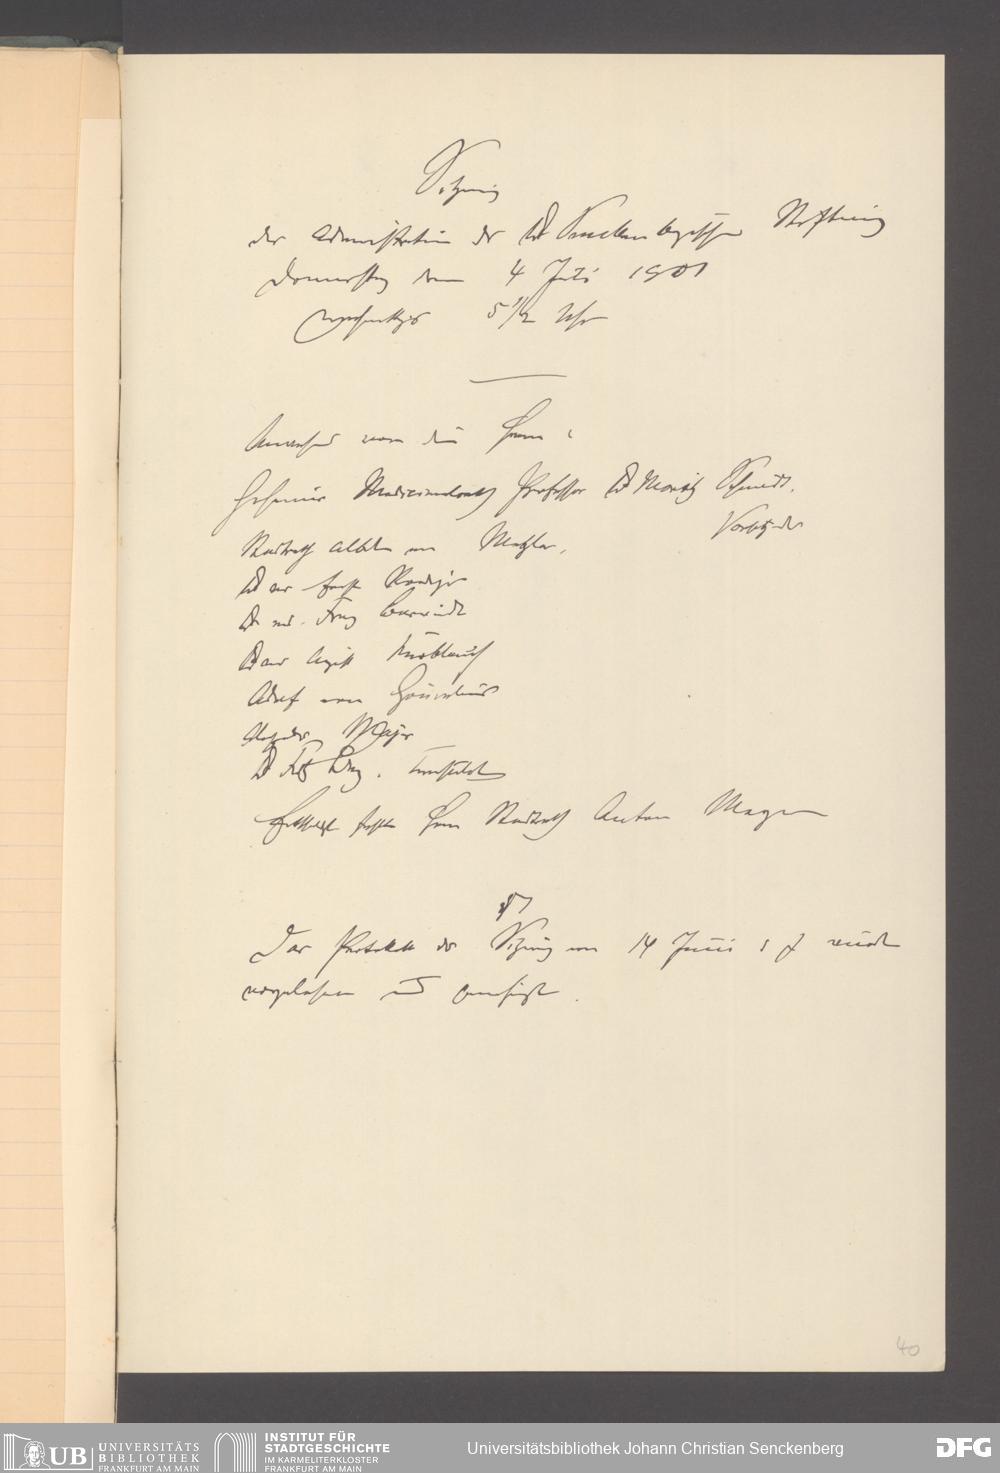 Sitzung
der Administration der Dr Senckenbergischen Stiftung
Donnerstag den 4 Juli 1901
nachmittags 5 1/2 Uhr
Anwesend waren die Herren:
Geheimer Medicinalrath Professor Dr Moritz Schmidt,
Vorsitzender
Stadtrath Albert von Metzler,
Dr med Ernst Roediger
Dr med. Franz
Dr med August Knoblauch
Adolf von
Alexander Majer
Dr Fritz Berg.
Entschuldigt fehlte Herr Stadtrath Anton Meyer
Das Protokoll der Sitzung vom 14 Juni wurde
vorgelesen und genehmigt.
40
UB UNIVERSITÄTS
BIBLIOTHEK
FRANKFURT AM MAIN
INSTITUT FÜR
STADTGESCHICHTE
IM KARMELITERKLOSTER
FRANKFURT AM MAIN
Universitätsbibliothek Johann Christian Senckenberg
DFG